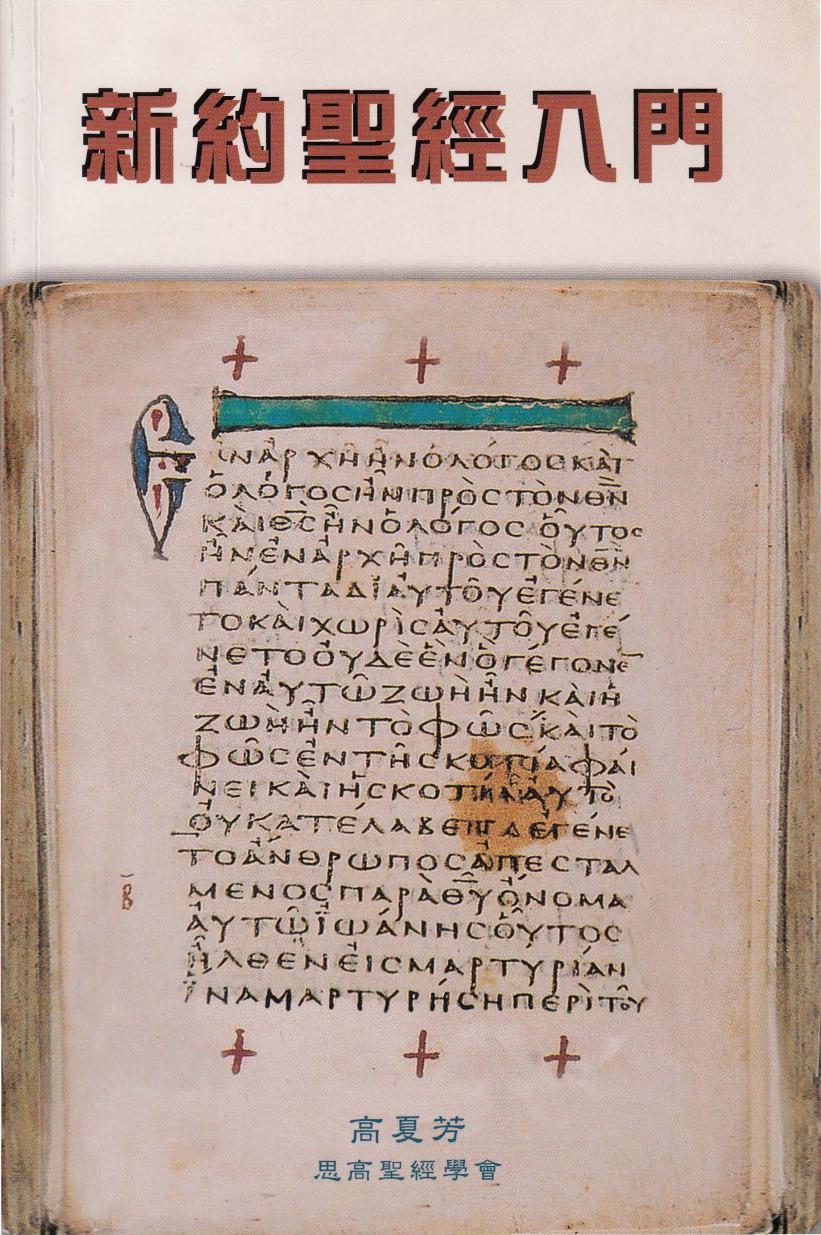 新約聖經入門
ΕΝΑΡΧΗ͂ΗΝὉΛΌΓΟϹΚΑῚ
ὉΛΌΓΟϹΗ͂ΝΠΡῸϹΤῸΝΘ̅Ν̅
ΚΑῚΘ̅Ϲ̅Η͂ΝὉΛΌΓΟϹ ΟΥ͂ΤΟϹ
Η͂ΝἘΝΑΡΧΗ͂ΠΡῸϹΤῸΝΘ̅Ν̅
ΠΆΝΤΑΔΙΑΥΤΟΥ͂ἘΓΈΝΕ
ΤΟΚΑῚΧΩΡῚϹΑΥΤΟΥ͂ἘΓΈ
ΝΕΤΟΟΥΔῈἝΝὋΓΈΓΟΝΕ̅
ἘΝΑΥΤΩ͂ΖΩῊΗ͂ΝΚΑῚἩ
ΖΩῊΗ͂ΝΤῸΦΩ͂Ϲ ΚΑῚΤῸ
ΦΩ͂ϹἘΝΤΗ͂ϹΚΟΤΊΑΦΑΊ
ΝΕΙΚΑῚἩϹΚΟΤΊΑΑΥΤῸ
ΟΥΚΑΤΈΛΑΒΕΝ ἘΓΈΝΕ
ΤΟἌΝΘΡΩΠΟϹἈΠΕϹΤΑΛ
ΜΕΝΟϹΠΑΡᾺΘ̅Υ̅ὌΝΟΜΑ
ΑΥΤΩ͂ΪΩΆΝΗϹΟΥ͂ΤΟϹ
Η͂ΛΘΕΝἘΙϹΜΑΡΤΥΡΊΑΝ
ἽΝΑΜΑΡΤΥΡΉϹΗΠΕΡῚΤΟΥ͂
高夏芳
思高聖經學會